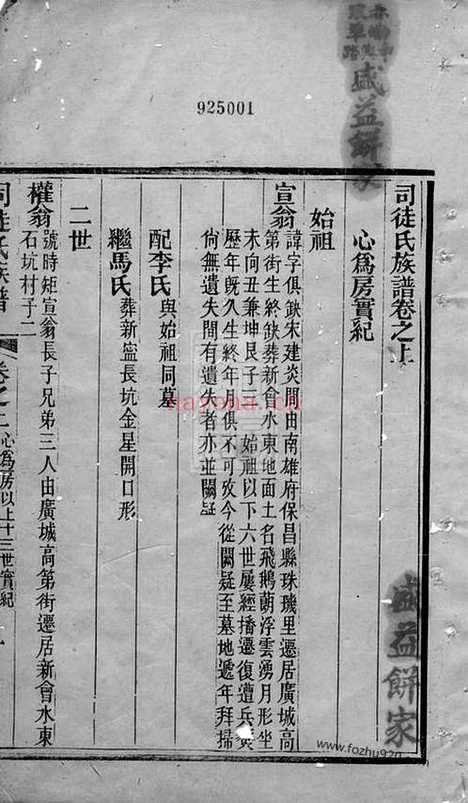 925001
盛益餅家
司徒氏族譜卷之上
心爲房實紀
始祖
宣翁
諱字俱缺宋建炎間由南雄府保昌縣珠璣里遷居廣城高
第街生終缺葬新會水東地面土名飛鵝蓢浮雲湧月形坐
未向丑兼坤艮子三 始祖以下六世屢經播遷復遭兵燹
歷年旣久生終年月俱不可攷今從闕疑至墓地遞年拜掃
尙無遺失間有遺失者亦並闕疑
配李氏與始祖同墓
繼馬氏葬新寧長坑金星開口形
二世
權翁
號時矩宣翁長子兄弟三人由廣城高第街遷居新會水東
石坑村子二
司徒氏族譜
卷之上
心爲房以上十三世實紀
一
盛益餅家
nayona.cn
www.fozhu920